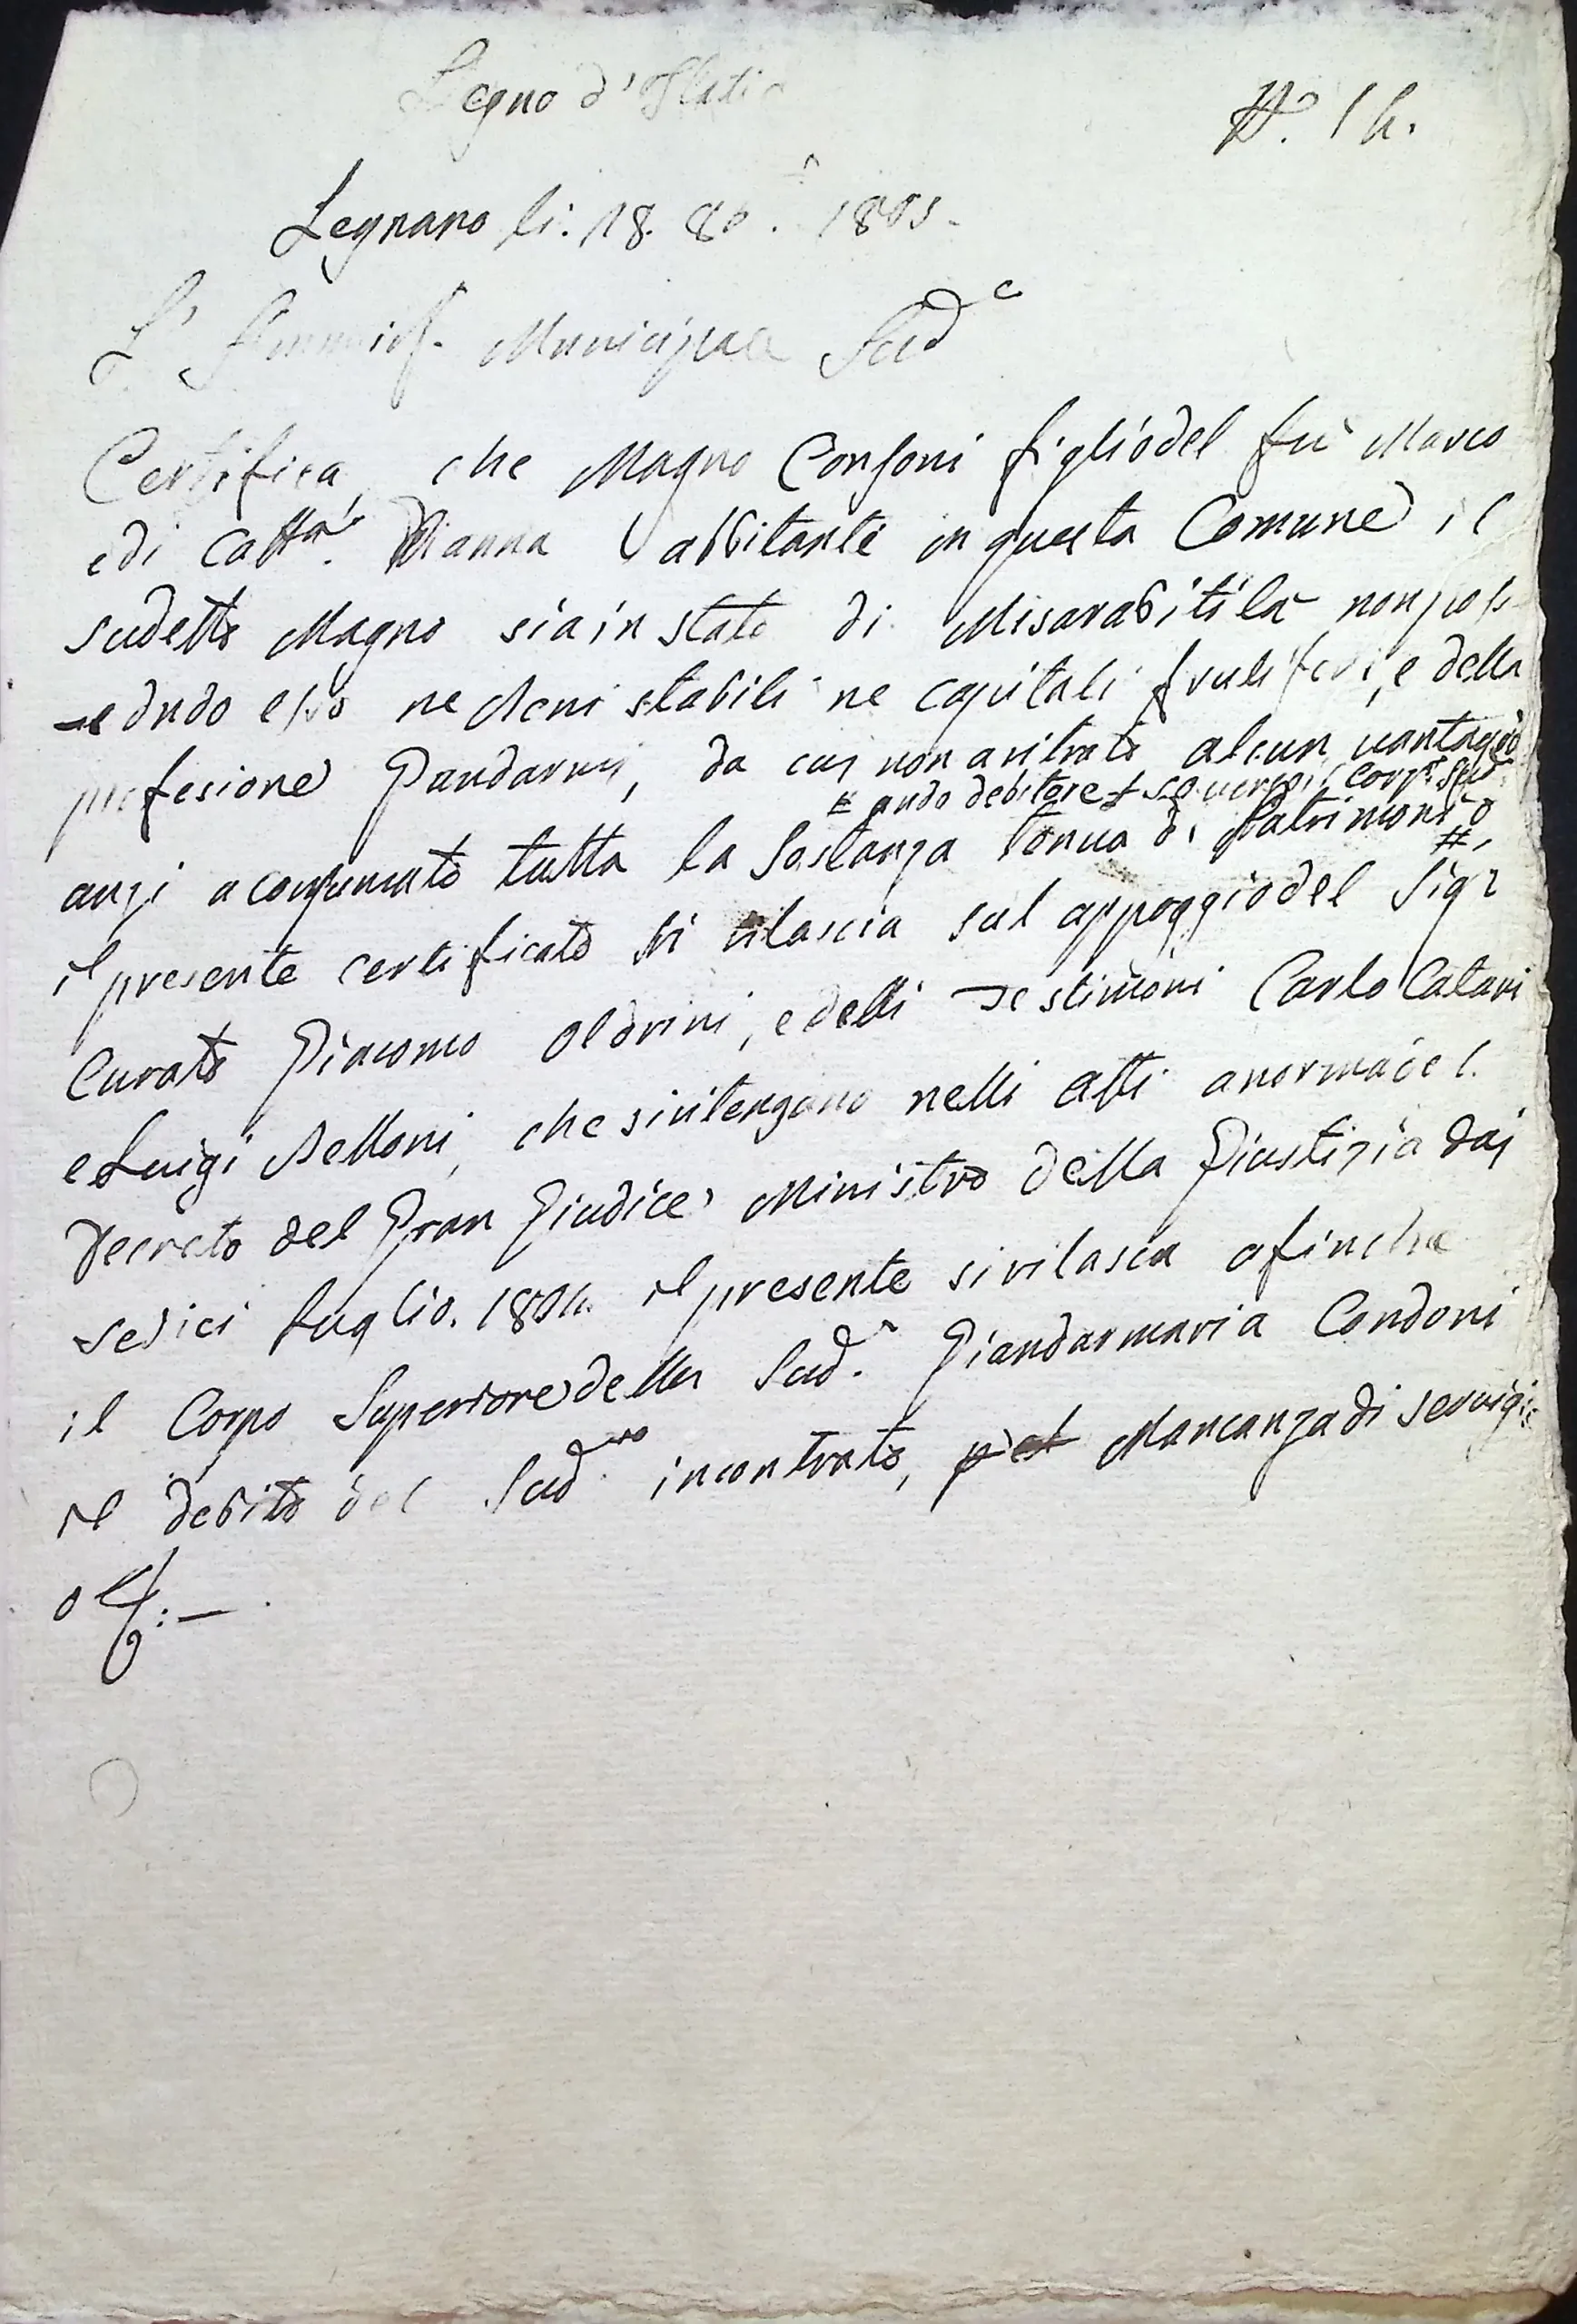 Regno d'Italia
N.o 14.
Legnano li. 18. 8b. 1805.
L' Amminis. Municipale Sud.e
Certifica, che Magno Consoni figlio del fù Marco
e di Catta. Dianna abbitante in questa Comune il
sudetto Magno sia in stato di Misarabitila non pos-
-edndo esso ne Beni stabili ne capitali frutiferi, e della
profesione Gandarmi, da cui non a ritrato alcun vantagio
# ando debitore verso il corp.o Sud.
anzi a consumato tutta la Sostanza tenua di Patrimonio #,
il presente certificato si rilascia sul appoggio del Sigr
Curato Giacomo Oldrini, e delli Testimoni Carlo Catani
e Luigi Belloni, che si ritengano nelli atti a norma del.
Decreto del Gran Giudice Ministro della Giustizia dai
sedici luglio. 1804. il presente si rilascia afinche
il Corpo Superiore della Sud.a Giandarmaria Condoni
il debito del Sud.o incontrato, Mancanza di servigio